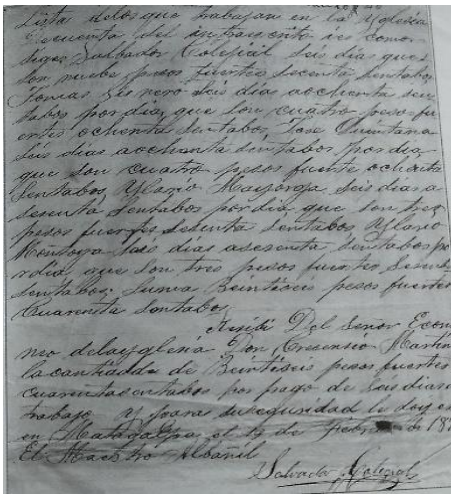 Lista delos que trabajan en la Yglesia
Decuenta del
sigue, Salbador Colejial seis dias que
son nuebe pesos fuertes secenta sentabos
Tomas Sisnero seis dias aochenta sen
tabos por dia, que son cuatro pesos fu
ertes ochenta sentabos, Jose Quintana
seis dias aochenta sentabos por dia
que son cuatro pesos fuerte ochenta
Sentabos, Ylario Mayorga, seis dias a
sesenta Sentabos por dia, que son tres
pesos fuertes sesenta sentabos, Ylario
Montoya seis dias asesenta sentabos po
rdia, que son tres pesos fuertes Sesen
sentabos. Suma Beintiseis pesos fuertes
Cuarenta sentabos
Resibi Del Señor Econo
mo delayglesia Don Cresensio Martin
la cantidad de Beintiseis pesos fuertes
cuarentasentabos por pago de seis dias
trabajo y para su seguridad le doy es
en Matagalpa, el 14 de Febrero de 18
El Maestro Albañil
Salvador Colejial